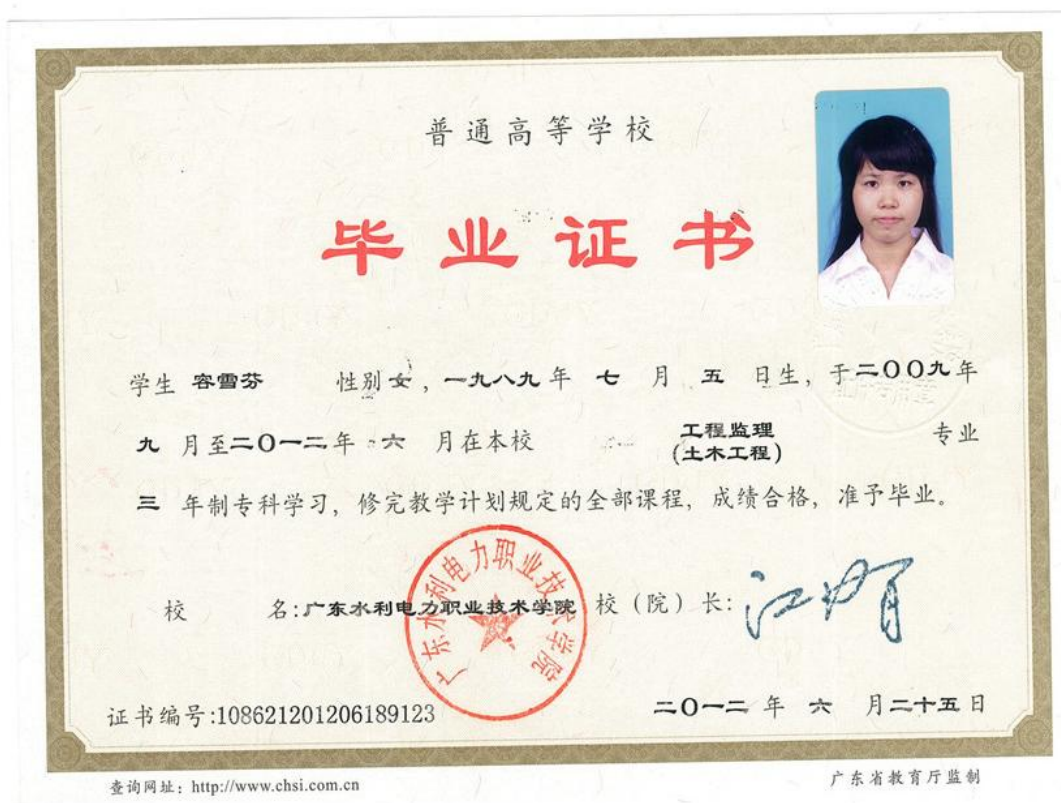 普通高等学校
毕业证书
学生 容雪芬 性别 女，一九八九年 七 月 五 日生，于二〇〇九年
九 月至二〇一二年 六 月在本校 工程监理 专业
(土木工程)
三 年制专科学习，修完教学计划规定的全部课程，成绩合格，准予毕业。
广东水利电力职业技术学院
校 名:广东水利电力职业技术学院 校（院）长:
证书编号:108621201206189123 二〇一二 年 六 月二十五日
查询网址：http://www.chsi.com.cn 广东省教育厅监制